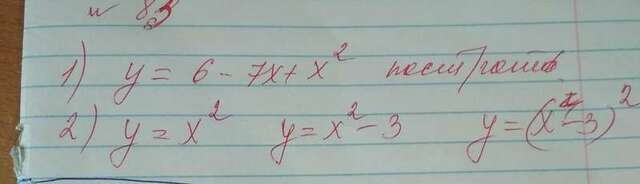 № 83
1) y = 6 - 7x + x² построить
2) y = x² y = x² - 3 y = (x - 3)²